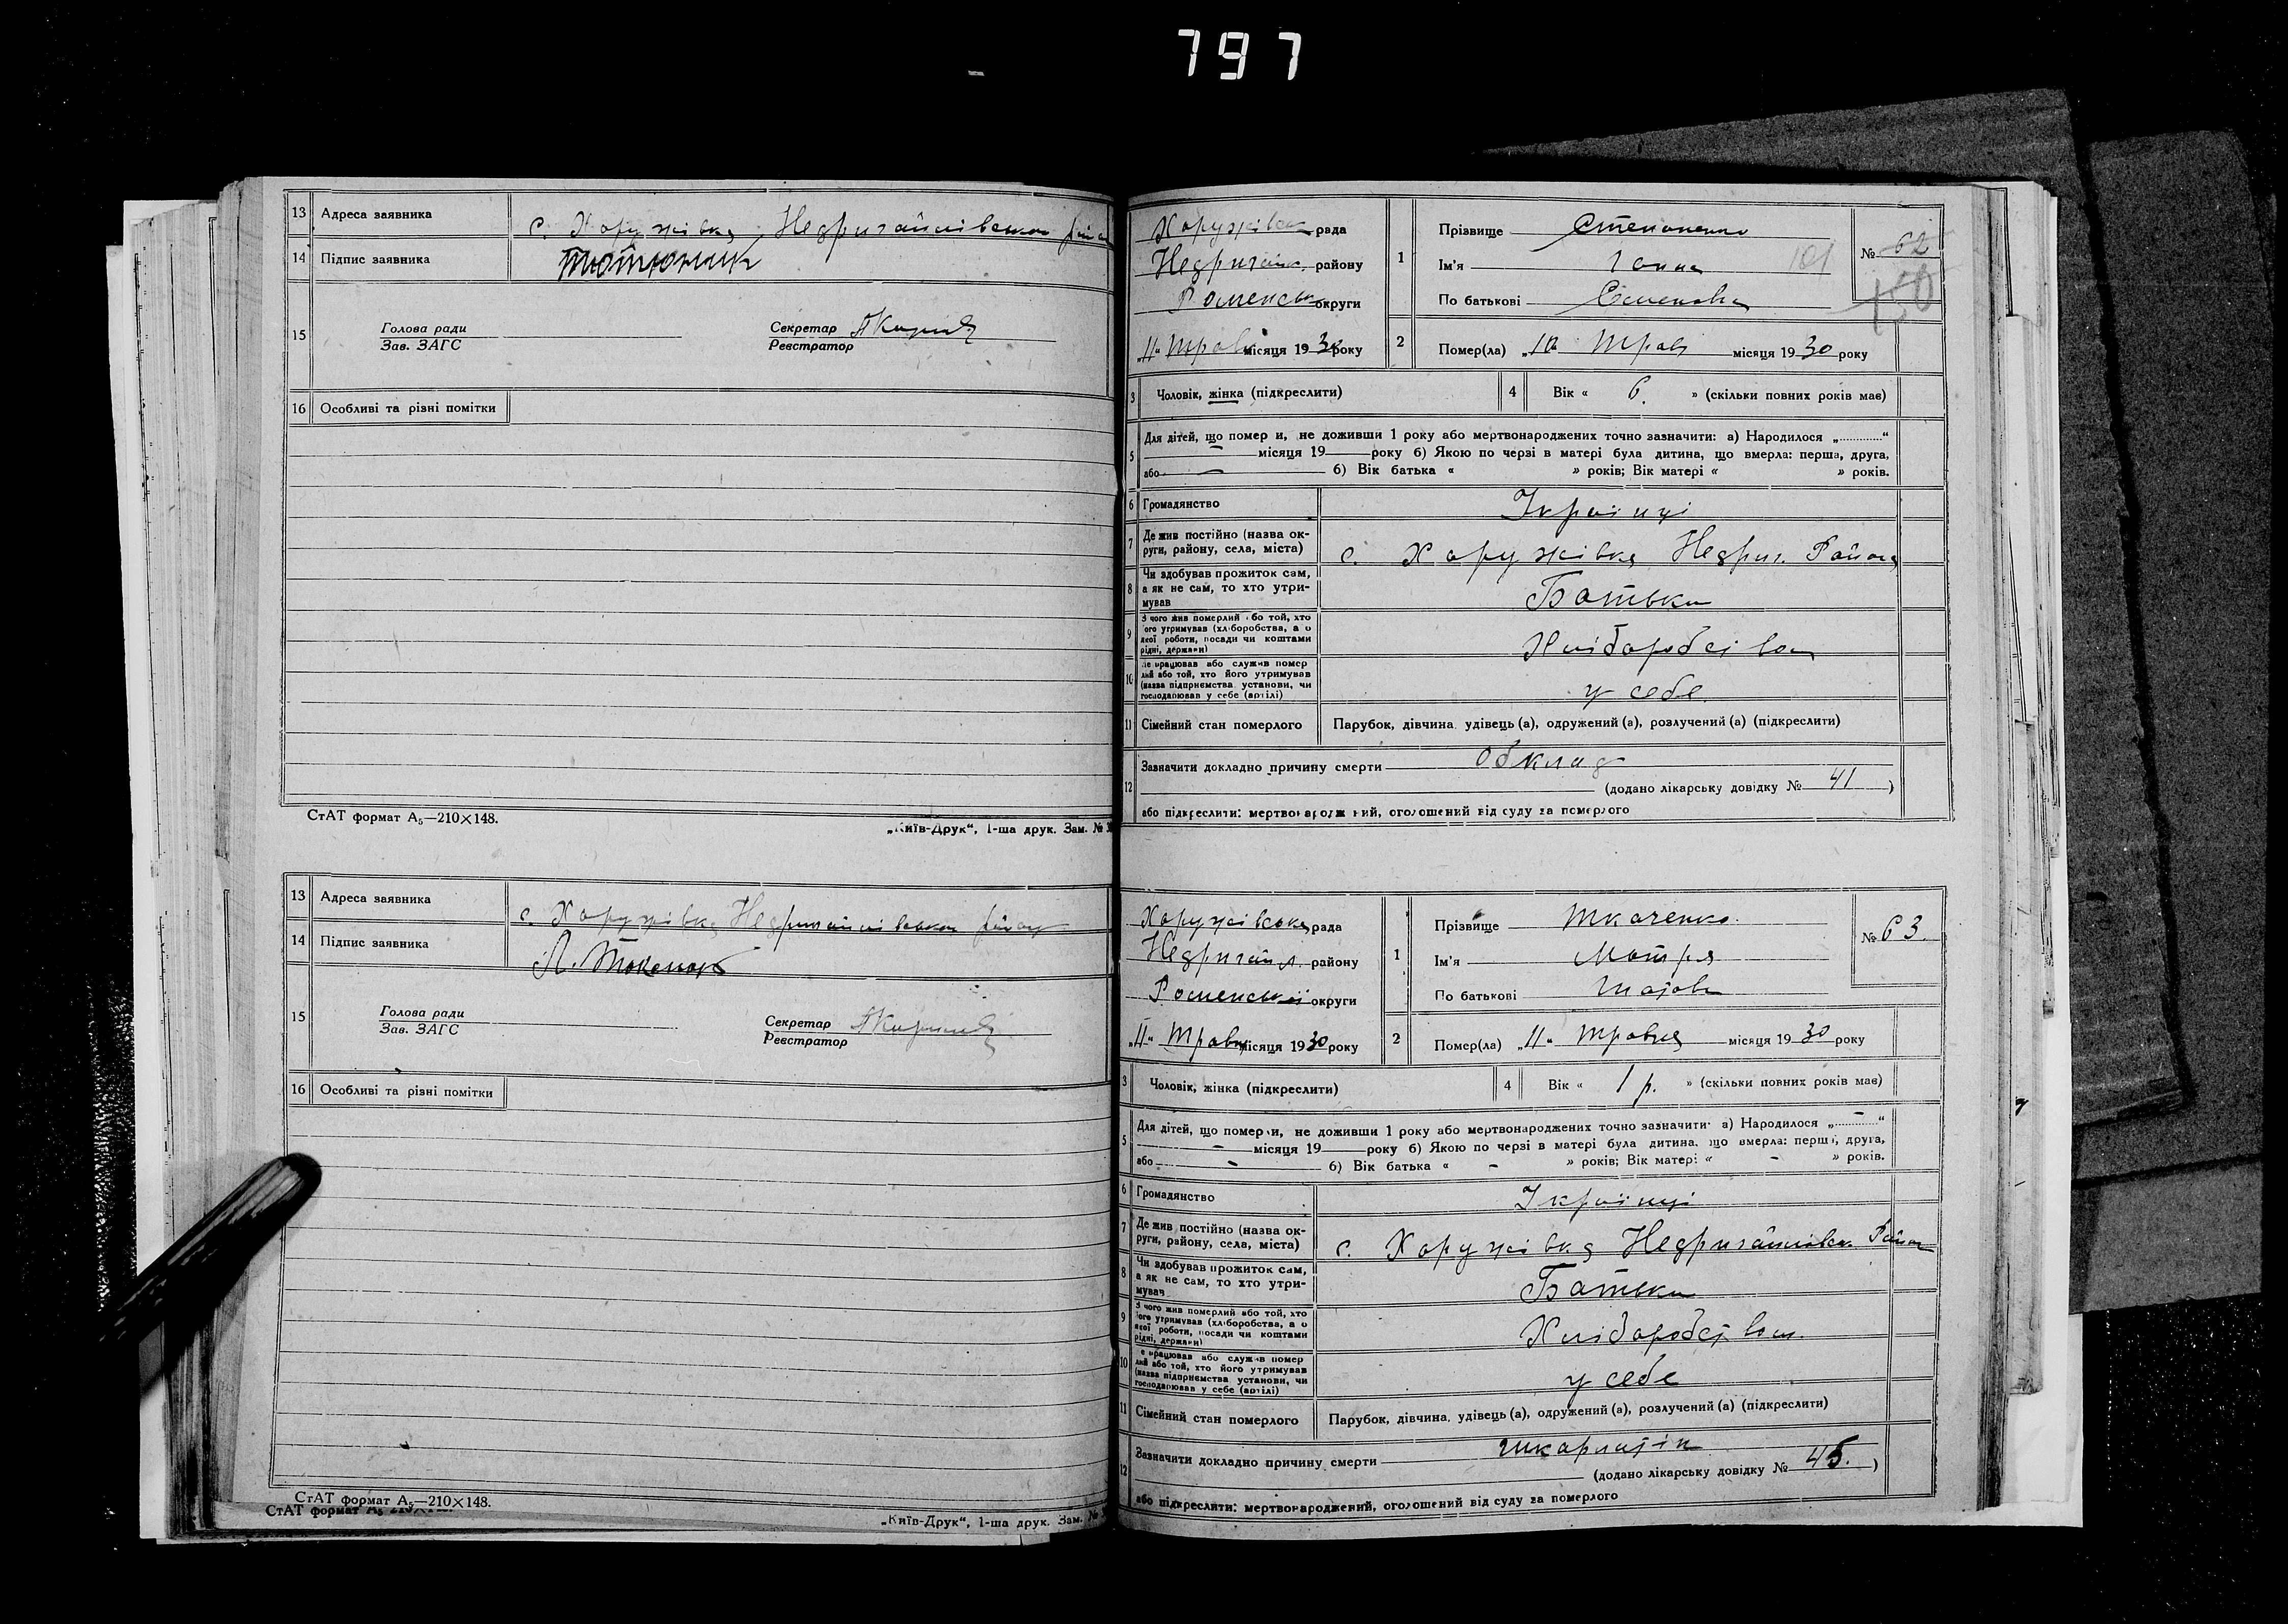 797
13 Адреса заявника с. Хоружівка Недригайлівськом
14 Підпис заявника
15 Голова ради Секретар
Зав. ЗАГС Реєстратор
16 Особливі та різні помітки
СтАТ формат А5—210×148.
„Київ-Друк“, 1-ша друк. Зам. №
13 Адреса заявника с. Хоружівка
14 Підпис заявника
15 Голова ради Секретар
Зав. ЗАГС Реєстратор
16 Особливі та різні помітки
СтАТ формат А5—210×148.
СтАТ формат
„Київ-Друк“, 1-ша друк. Зам. №
Хоружівськ рада
Недригайл. району
Роменськ округи
„11“ Трав місяця 1930 року
1 Прізвище Степаненко
Ім'я Ганна 181
По батькові Семенова
№ 62
2 Помер(ла) „10 Трав місяця 1930 року
3 Чоловік, жінка (підкреслити) 4 Вік « 6. » (скільки повних років має)
5 Для дітей, що померли, не доживши 1 року або мертвонароджених точно зазначити: а) Народилося „............“
— місяця 19 року б) Якою по черзі в матері була дитина, що вмерла: перша, друга,
або — 6) Вік батька « » років; Вік матері « » років.
6 Громадянство Українці
7 Де жив постійно (назва ок-
руги, району, села, міста) с. Хоружівка Недриг. Района
8 Чи здобував прожиток сам,
а як не сам, то хто утри-
мував Батьки
9 З чого жив померлий або той, хто
його утримував (хліборобства, а о
якої роботи, посади чи коштами
рідні, держави) Хліборобсівом
10 Де працював або служив помер
лий або той, хто його утримував
(назва підприємства установи, чи
господарював у себе (артілі) у себе.
11 Сімейний стан померлого Парубок, дівчина, удівець (а), одружений (а), розлучений (а) (підкреслити)
12 Зазначити докладно причину смерти Обклад
(додано лікарську довідку № 41 )
або підкреслити: мертвонароджений, оголошений від суду за померлого
Хоружівська рада
Недригайл. району
Роменської округи
„11“ Травня місяця 1930 року
1 Прізвище Ткаченко
Ім'я Мотря
По батькові
№ 63.
2 Помер(ла) „11“ травня місяця 1930 року
3 Чоловік, жінка (підкреслити) 4 Вік « 1 р. » (скільки повних років має)
5 Для дітей, що померли, не доживши 1 року або мертвонароджених точно зазначити: а) Народилося „............“
— місяця 19 року б) Якою по черзі в матері була дитина, що вмерла: перша, друга,
або — 6) Вік батька « – » років; Вік матері « – » років.
6 Громадянство Українці
7 Де жив постійно (назва ок-
руги, району, села, міста) с. Хоружівка Недригайлівськ. Район
8 Чи здобував прожиток сам,
а як не сам, то хто утри-
мував Батьки
9 З чого жив померлий або той, хто
його утримував (хліборобства, а о
якої роботи, посади чи коштами
рідні, держави) Хліборобсівом.
10 Де працював або служив помер
лий або той, хто його утримував
(назва підприємства установи, чи
господарював у себе (артілі) у себе
11 Сімейний стан померлого Парубок, дівчина, удівець (а), одружений (а), розлучений (а) (підкреслити)
12 Зазначити докладно причину смерти шкарлатін
(додано лікарську довідку № 45. )
або підкреслити: мертвонароджений, оголошений від суду за померлого